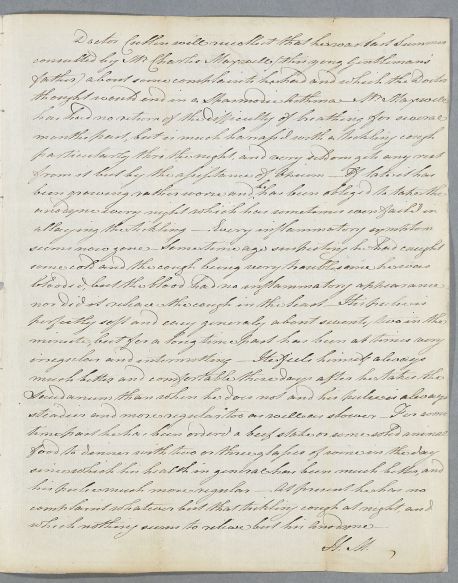 Doctor Cullen will recollect that he was last Summer
consulted by Mr. Charles Maxwell (this young Gentleman's
father) about some complaints he had and which the Doctor
thought would end in a Spasmodic Asthma Mr. Maxwell
has had no return of the difficulty of breathing for several
months past, but is much harrass'd with a tickling cough
particularly thro' the night, and very seldom gets any rest
from it but by the assistance of Opium — Of late it has
been growing rather worse and he has been obliged to take the
anodyne every night which has sometimes even fail'd in
allaying the tickling — Every inflammatory symptom
seems now gone Sometime ago suspecting he had caught
some cold and the cough being very troublesome he was
blooded, but the blood had no inflammatory appearance
nor did it relieve the cough in the least — His pulse is
perfectly soft and easy generaly about seventy two in the
minute, but for a long time past has been at times very
irregular and intermitting — He feels himself always
much better and comfortable those days after he takes the
Laudanum than when he does not and his pulse is always
steadier and more regular too as well as slower — For some
time past he has been order'd a beef stake or some solid animal
food to dinner with two or three glasses of wine in the day
since which his health in general has been much better, and
his pulse much more regular — At present he has no
complaint whatever but that tickling cough at night and
which nothing seems to relieve but his Anodyne —